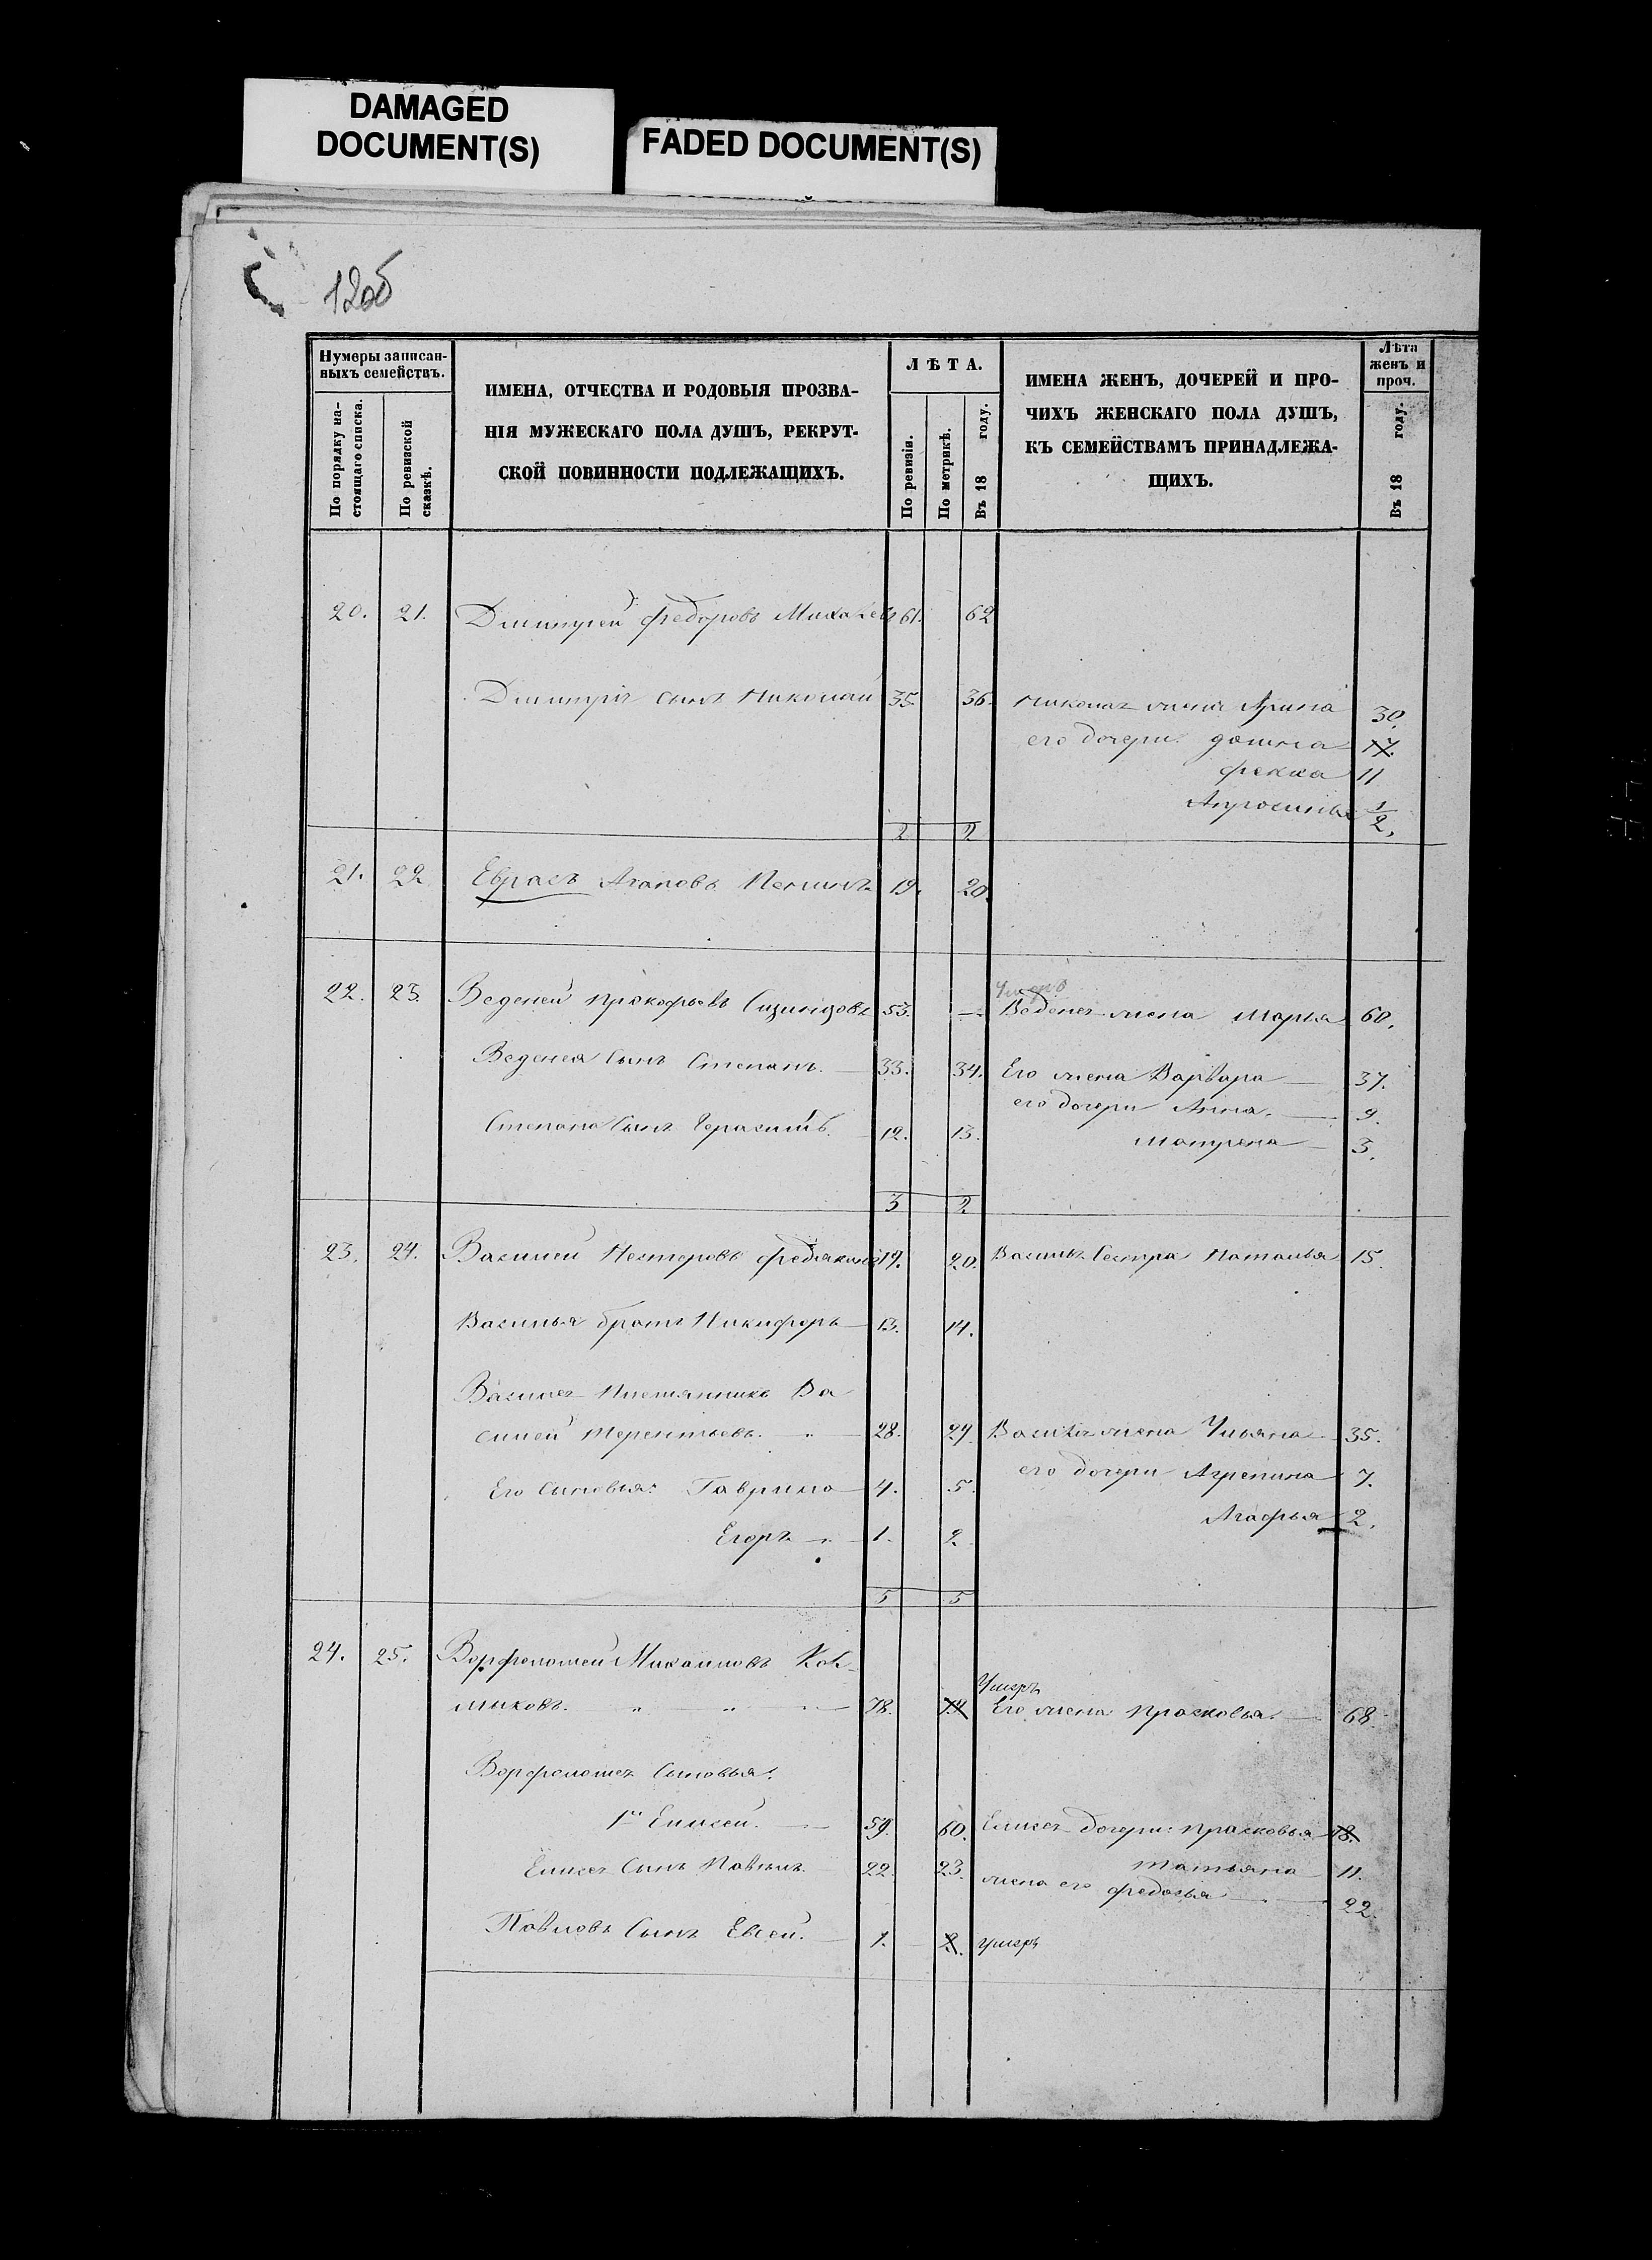 DAMAGED
DOCUMENT(S)
FADED DOCUMENT(S)
12об
Нумеры записан-
ныхъ семействъ.
По порядку на-
стоящаго списка.
По ревизской
сказкѣ.
ИМЕНА, ОТЧЕСТВА И РОДОВЫЯ ПРОЗВА-
НІЯ МУЖЕСКАГО ПОЛА ДУШЪ, РЕКРУТ-
СКОЙ ПОВИННОСТИ ПОДЛЕЖАЩИХЪ.
ЛѢТА.
По ревизіи.
По метрикѣ.
Въ 18 году.
ИМЕНА ЖЕНЪ, ДОЧЕРЕЙ И ПРО-
ЧИХЪ ЖЕНСКАГО ПОЛА ДУШЪ,
КЪ СЕМЕЙСТВАМЪ ПРИНАДЛЕЖА-
ЩИХЪ.
Лѣта
женъ и
проч.
Въ 18 году.
20. 21. Дмитрей Федоровъ 61. 62
Дмитрія сынъ Николай 35. 36. Николая жена Арина 30.
его дочери: Домна 17.
Фекла 11
Апросинья 1/2.
2 2
21. 22 Агаповъ 19. 20.
22. 23. Веденей Прокофьевъ 53. — Веденея жена Марья 60.
Умеръ
Веденея Сынъ Степанъ. 33. 34. Его жена Варвара 37.
его дочери Анна. 9.
Степана Сынъ Герасимъ. 12. 13. Матрена 3.
3 2
23. 24. Василей Нестеровъ Федякинъ 19. 20. Василья Сестра Наталья 15.
Василья братъ Никифоръ 13. 14.
Василья Племянникъ Ва
силей Терентьевъ. 28. 29. Василья жена Ульяна 35.
Его Сыновья: Гаврило 4. 5. его дочери Агрепина 7.
Егоръ 1. 2 Агафья 2.
5 5
24. 25. Ворфоломей Михаиловъ Кол-
мыковъ. 78. 79 Умеръ
Его жена Прасковья. 68.
Ворфоломея Сыновья:
1й Елисей. 59. 60. Елисея дочери: Прасковья 18.
Татьяна 11.
Елисея Сынъ Павелъ. 22. 23. жена его Федосья 22.
Павловъ Сынъ Евсей. 1. 2. умеръ